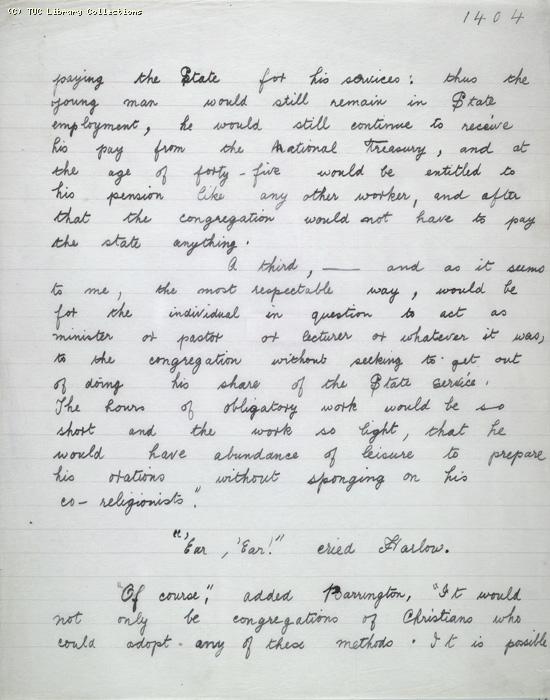 (C) TUC Library Collections
1404
paying the State for his services: thus the
young man would still remain in State
employment, he would still continue to receive
his pay from the National Treasury, and at
the age of forty-five would be entitled to
his pension like any other worker, and after
that the congregation would not have to pay
the state anything.
A third, — and as it seems
to me, the most respectable way, would be
for the individual in question to act as
minister or pastor or lecturer or whatever it was,
to the congregation without seeking to get out
of doing his share of the State service.
The hours of obligatory work would be so
short and the work so light, that he
would have abundance of leisure to prepare
his orations without sponging on his
co-religionists."
"'Ear, 'Ear!" cried Harlow.
"Of course," added Barrington, "It would
not only be congregations of Christians who
could adopt any of these methods. It is possible